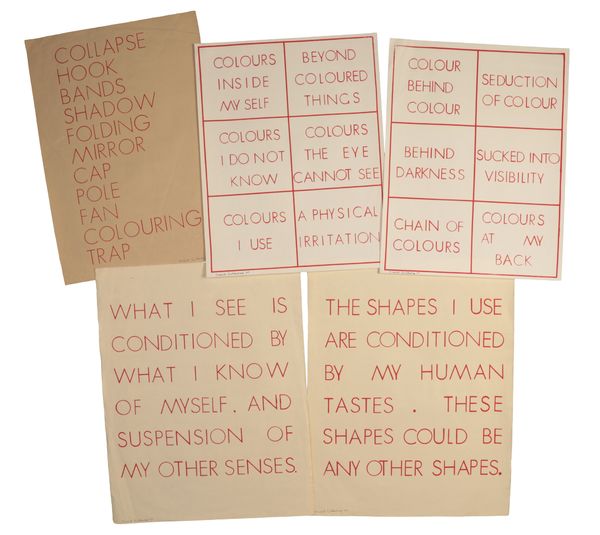 COLLAPSE
HOOK
BANDS
SHADOW
FOLDING
MIRROR
CAP
POLE
FAN
COLOURING
TRAP
COLOURS
INSIDE
MY SELF
BEYOND
COLOURED
THINGS
COLOURS
I DO NOT
KNOW
COLOURS
THE EYE
CANNOT SEE
COLOURS
I USE
A PHYSICAL
IRRITATION
COLOUR
BEHIND
COLOUR
SEDUCTION
OF COLOUR
BEHIND
DARKNESS
SUCKED INTO
VISIBILITY
CHAIN OF
COLOURS
COLOURS
AT MY
BACK
WHAT I SEE IS
CONDITIONED BY
WHAT I KNOW
OF MYSELF. AND
SUSPENSION OF
MY OTHER SENSES.
THE SHAPES I USE
ARE CONDITIONED
BY MY HUMAN
TASTES . THESE
SHAPES COULD BE
ANY OTHER SHAPES.